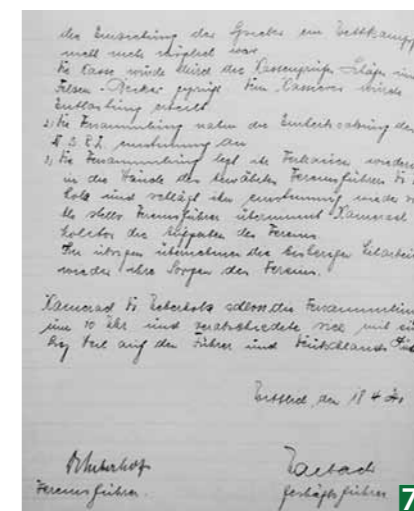 die Einziehung der Spieler ein Wettkampf
nicht mehr möglich war
Die Casse wurde durch die Cassenprüfer Schäfer und
Felsen-Becker geprüft. Dem Cassierer wurde
Entlastung erteilt
2) Die Versammlung nahm die Einheitssatzung des
N.S.R.L. einstimmig an
3) Die Versammlung legt ihr Vertrauen wieder
in die Hände des bewährten Vereinsführers
und schlägt ihn einstimmig wieder vor
Als stellv. Vereinsführer übernimmt Kamerad
die Aufgaben des Vereins.
Im übrigen übernehmen die bisherigen Mitarbeiter
wieder ihre Sorgen des Vereins.
Kamerad schloss die Versammlung
um 10 Uhr und verabschiedete sich mit
Sieg Heil auf den Führer und Deutschlands
den 18 4
Vereinsführer.
Geschäftsführer
7